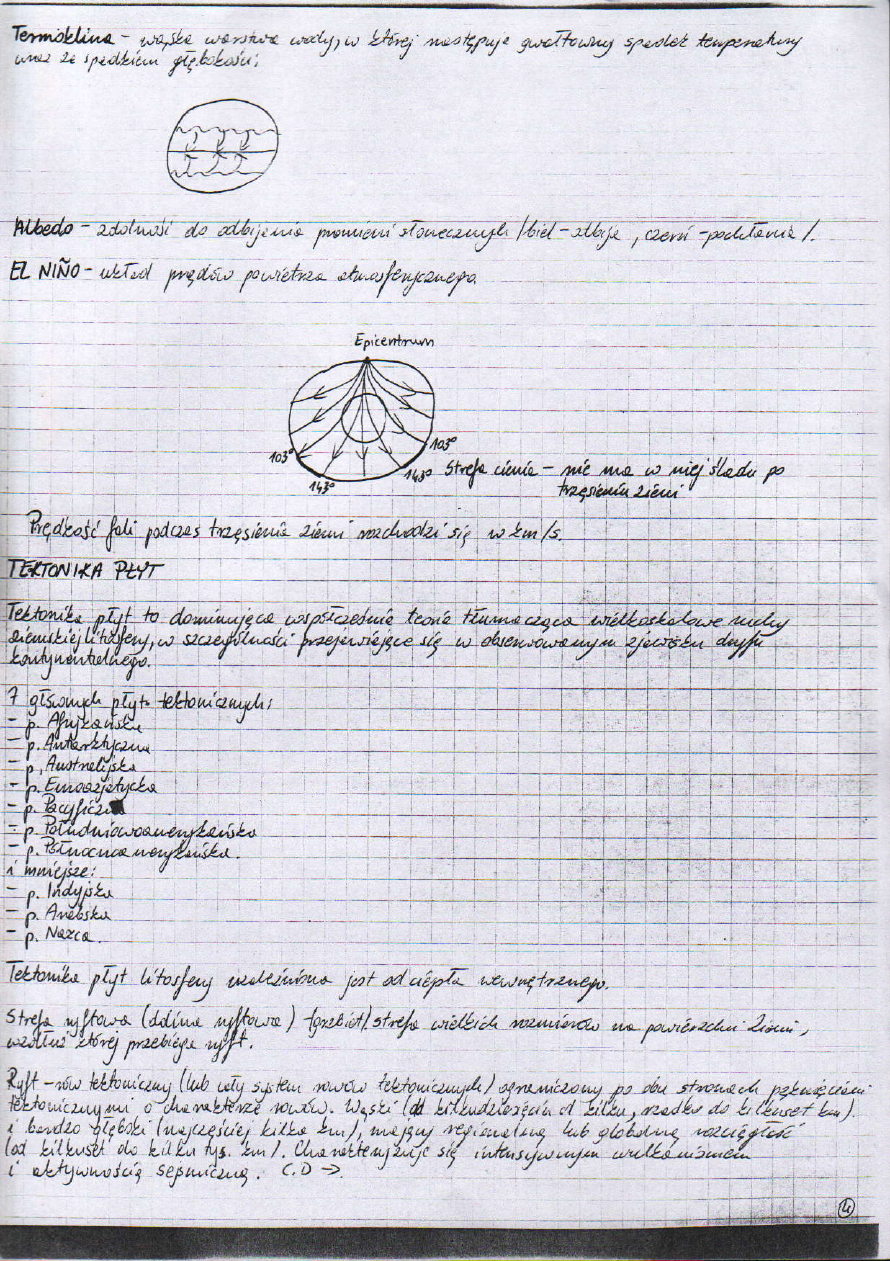 Termoklina - wąska warstwa wody, w której następuje gwałtowny spadek temperatury
wraz ze spadkiem głębokości;
Albedo - zdolność do odbijania promieni słonecznych /biel - odbija, czerń - pochłania/.
EL NIÑO - układ prądów powietrza atmosferycznego.
Epicentrum
103° 103°
143° 143°
Strefa cienia - nie ma w niej śladu po
trzęsieniu ziemi
Prędkość fali podczas trzęsienia ziemi rozchodzi się w km/s.
TEKTONIKA PŁYT
Tektonika płyt to dominująca współcześnie teoria tłumacząca wielkoskalowe ruchy
ziemskiej litosfery, w szczególności przejawiające się w obserwowanym zjawisku dryfu
kontynentalnego.
7 głównych płyt tektonicznych:
- p. Afrykańska
- p. Antarktyczna
- p. Australijska
- p. Euroazjatycka
- p. Pacyficzna
- p. Południowoamerykańska
- p. Północnoamerykańska.
i mniejsze:
- p. Indyjska
- p. Arabska
- p. Nazca.
Tektonika płyt litosfery uzależniona jest od ciepła wewnętrznego.
Strefa ryftowa (dolina ryftowa) (grzbiet) strefa wielkich rozmiarów na powierzchni Ziemi,
wzdłuż której przebiega ryft.
Ryft - rów tektoniczny (lub cały system rowów tektonicznych) ograniczony po obu stronach pęknięciami
tektonicznymi o charakterze rowów. Wąski (od kilkudziesięciu d kilku, rzadko do kilkuset km).
i bardzo głęboki (najczęściej kilka km), mający regionalną lub globalną rozciągłość
(od kilkuset do kilku tys. km). Charakteryzuje się intensywnym wulkanizmem
i aktywnością sejsmiczną. C.D →.
4